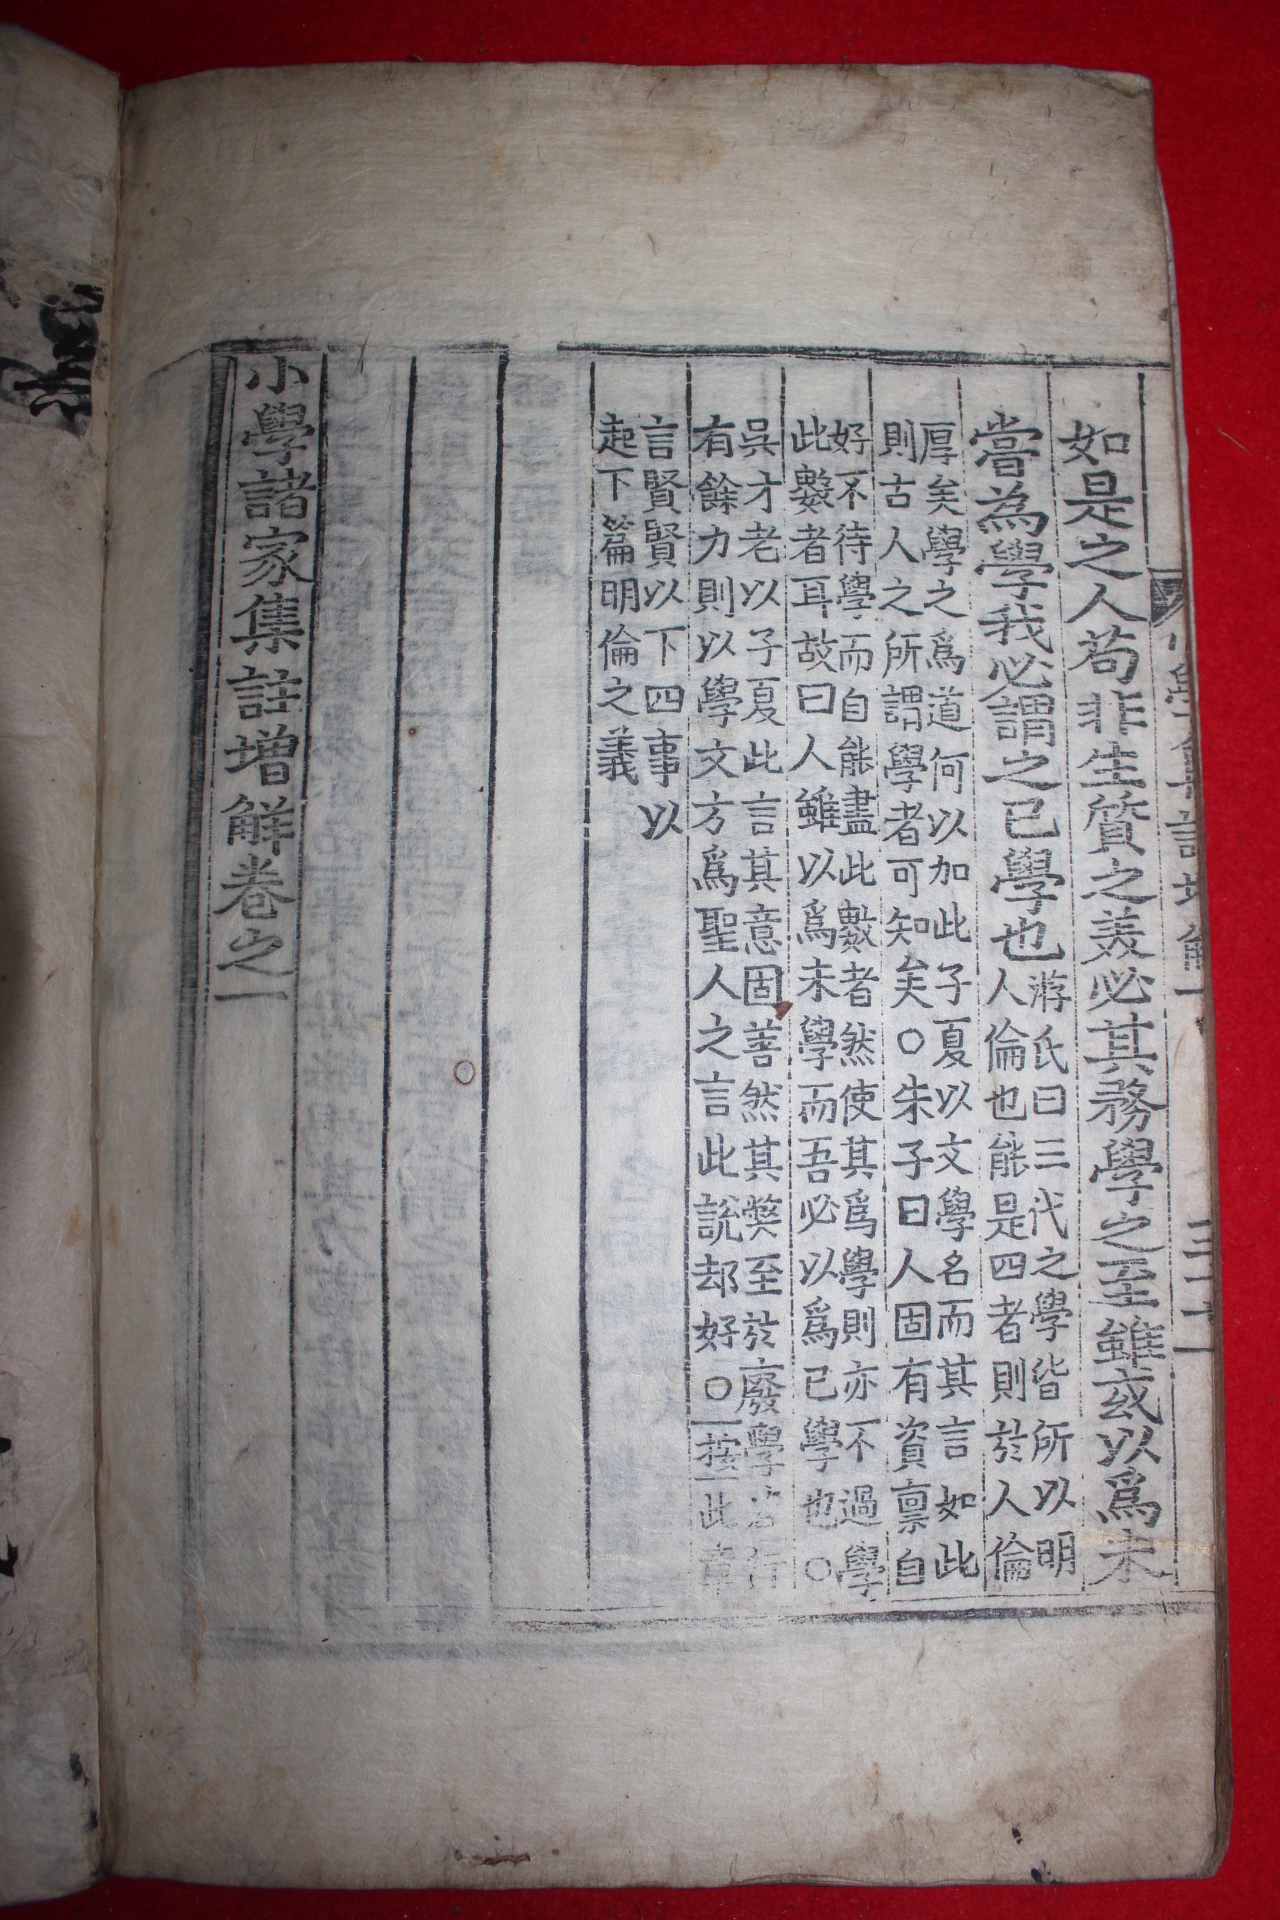 如是之人苟非生質之美必其務學之至雖或以爲未
嘗為學我必謂之已學也
游氏曰三代之學皆所以明
人倫也能是四者則於人倫
厚矣學之爲道何以加此子夏以文學名而其言如此
則古人之所謂學者可知矣○朱子曰人固有資禀自
好不待學而自能盡此數者然使其爲學則亦不過學
此數者耳故曰人雖以爲未學而吾必以爲已學也○
吳才老以子夏此言其意固善然其獘至於廢學若行
有餘力則以學文方爲聖人之言此說却好○按此章
言賢賢以下四事以
起下篇明倫之義
小學諸家集註增解卷之一